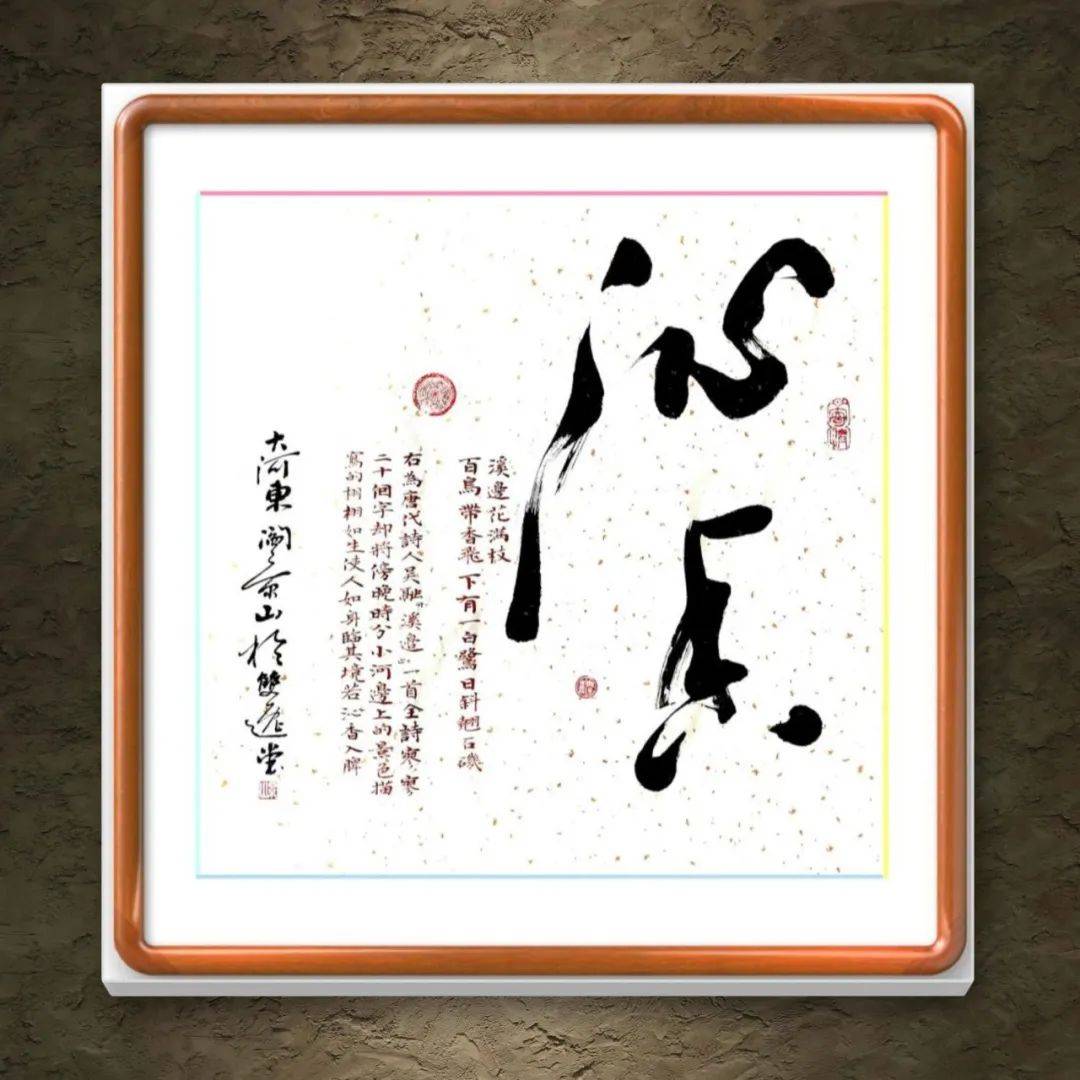 沁香
溪邊花滿枝
百鳥帶香飛 下有一白鷺日斜翹石磯
右為唐代詩人吴融“溪邊”一首全詩寥寥
二十個字却將傍晚時分小河邊上的景色描
寫的栩栩如生使人如身臨其境若沁香入脾
大河東 京山於雙堂